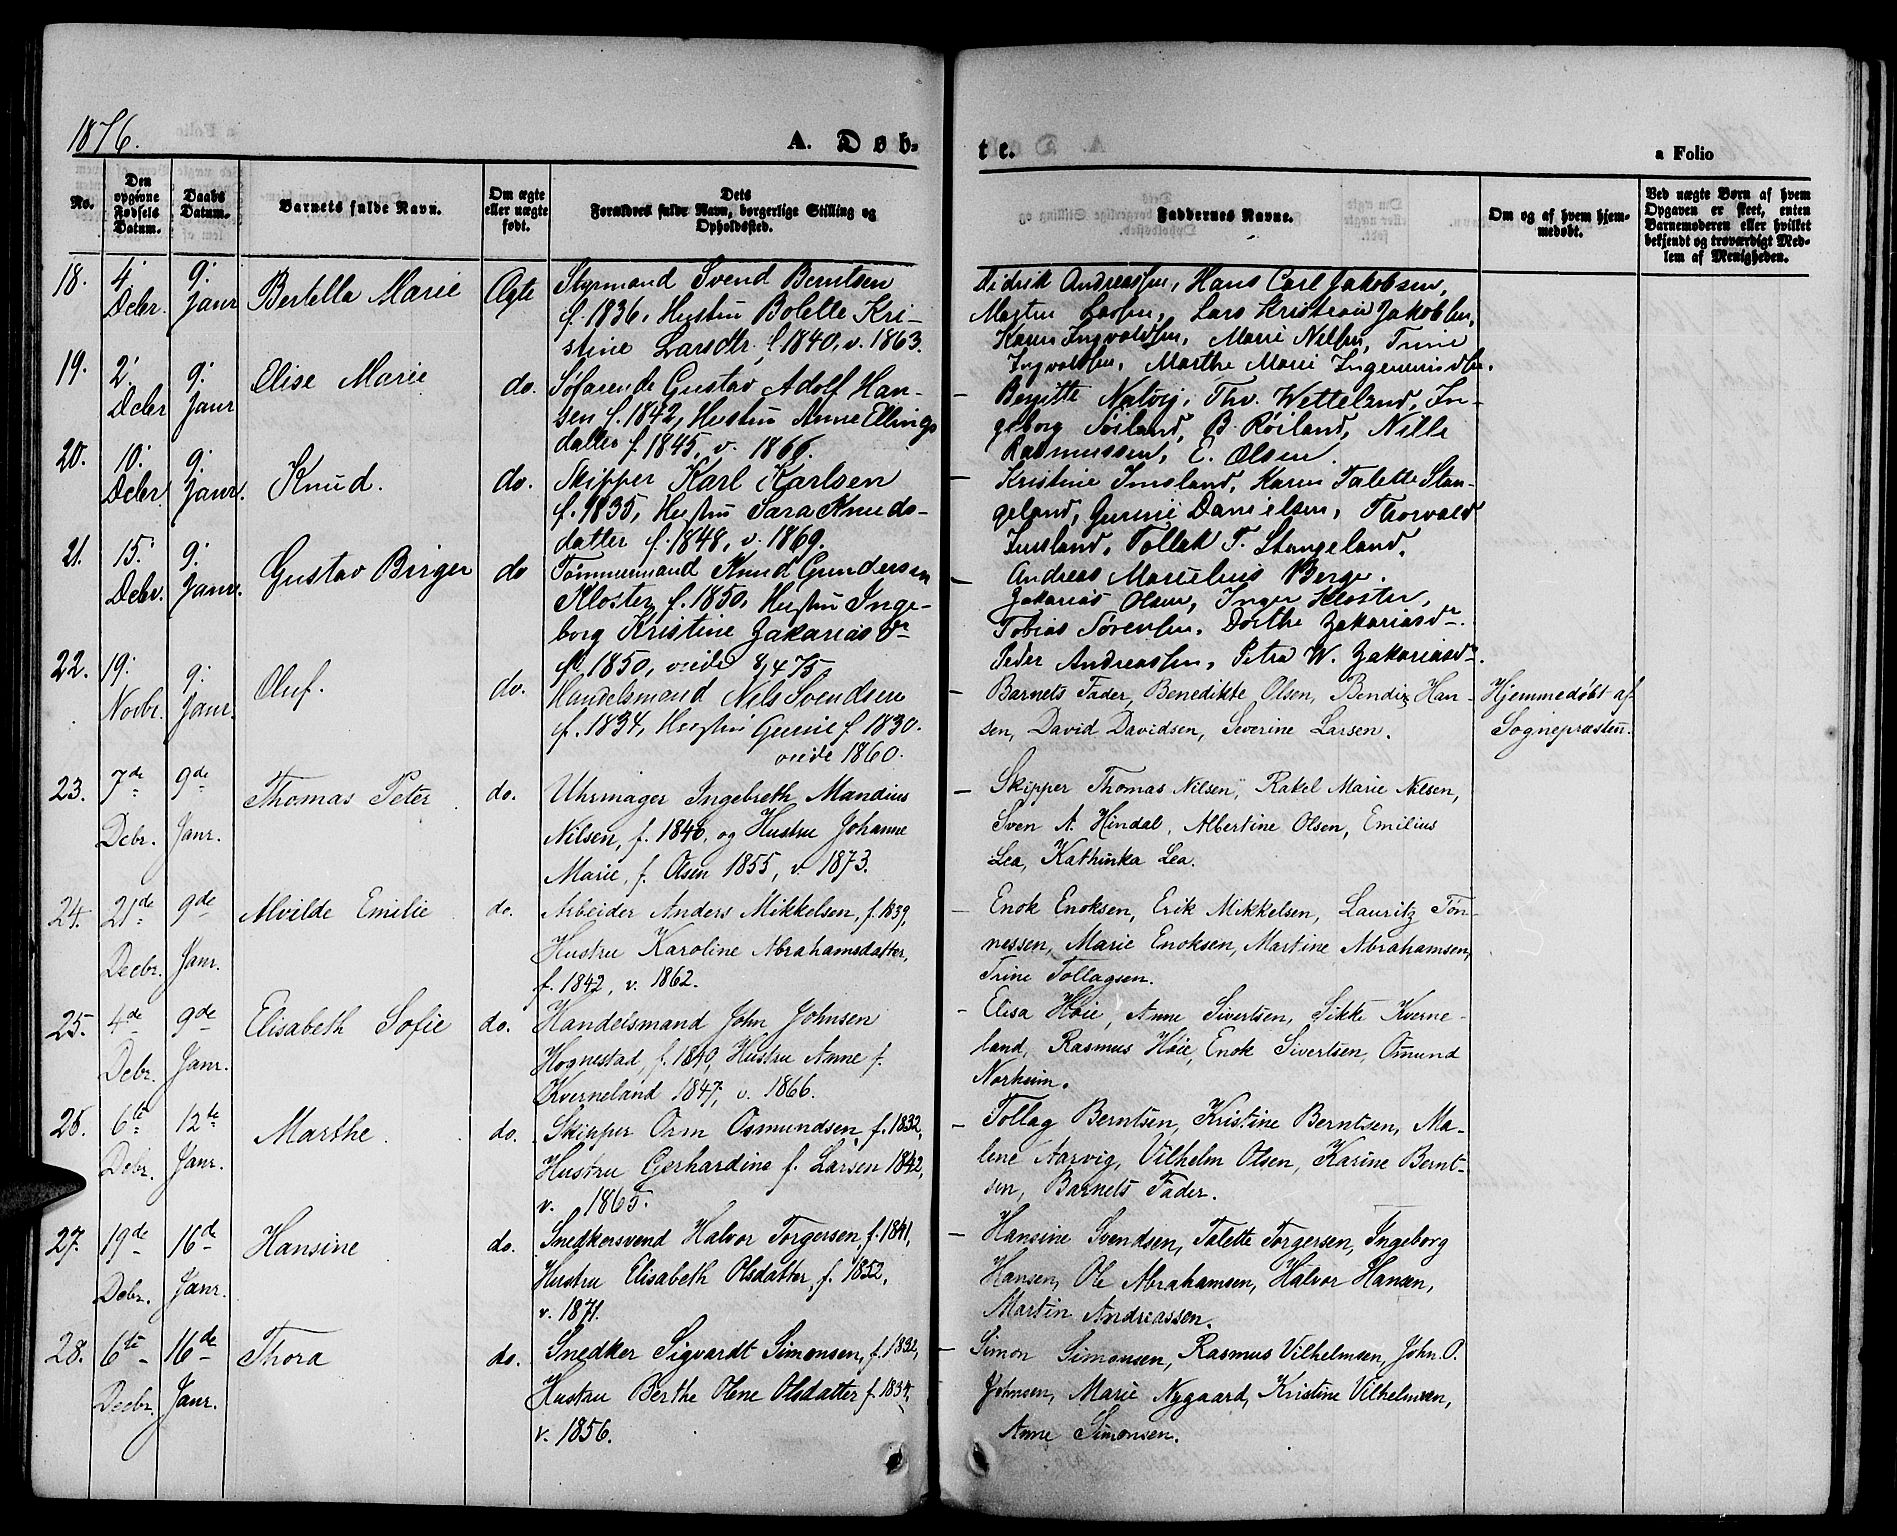 1876.
A. Døb-
te.
a Folio
No.
Den opgivne Fødsels Datum.
Daabs Datum.
Barnets fulde Navn.
Om ægte eller uægte født.
Dets Forældres fulde Navn, borgerlige Stilling og Opholdssted.
Faddernes Navne.
Om og af hvem hjemmedøbt.
Ved uægte Børn af hvem Opgaven er skeet, enten Barnemoderen eller hvilket bekjendt og troværdigt Medlem af Menigheden.
18. 4. Decbr. 9. Janr. Bertella Marie Ægte
Styrmand Svend Berntsen
f. 1836, Hustru Bolette Kri-
stine Larsdtr. f. 1840, v. 1863.
Didrik Andreassen, Hans Carl Jakobsen,
Larsen, Lars Kristian Jakobsen,
Karen Ingvaldsen, Marie Nilsen, Trine
Ingvaldsen, Marthe Marie
19. 2. Decbr 9. Janr Elise Marie do.
Søfarende Gustav Adolf Han-
sen f. 1842, Hustru Anne Ellings
datter f. 1845, v. 1866.
Bergitte Natvig, Thv. Wetteland, In-
geborg Soiland, B. Röiland, Nille
Rasmussen, E. Olsen.
20. 10. Decbr. 9. Janr. Knud. do.
Skipper Karl Karlsen
f. 1835, Hustru Sara Knuds-
datter f. 1848, v. 1869.
Kristine Imsland, Karen Talette Stan-
geland, Gurine Danielsen, Thorvald
Imsland, Tollak T. Stangeland.
21. 15. Decbr. 9. Janr. Gustav Birger do
Tømmermand Knud Gundersen
Kloster f. 1850, Hustru Inge-
borg Kristine Zakariasdr
f. 1850, viede 8,4 75
Andreas Marselius Berge.
Zakarias Olsen, Inger Kloster,
Tobias Sørensen, Dorthe Zakariasdr.
Peder Andreassen, Petra W. Zakariasdr.
22. 19. Novbr. 9. Janr. Oluf. do.
Handelsmand Nils Svendsen
f. 1834, Hustru Gurine f. 1830.
viede 1860.
Barnets Fader, Benedikte Olsen, Bendix Han-
sen, David Davidsen, Severine Larsen.
Hjemmedøbt af
Sognepræsten.
23. 7de Decbr. 9de Janr. Thomas Peter do.
Uhrmager Ingebreth Mandius
Nilsen, f. 1846, og Hustru Johanne
Marie, f. Olsen 1855, v. 1873.
Skipper Thomas Nilsen, Rakel Marie Nilsen,
Sven A. Hindal, Albertine Olsen, Emilius
Lea, Kathinka Lea.
24. 21de Decbr. 9de Janr. Alvilde Emilie do.
Arbeider Anders Mikkelsen, f. 1839,
Hustru Karoline Abrahamsdatter,
f. 1842, v. 1862.
Enok Enoksen, Erik Mikkelsen, Lauritz Tøn-
nessen, Marie Enoksen, Martine Abrahamsen,
Trine Tollagsen.
25. 4de Decbr. 9de Janr. Elisabeth Sofie do.
Handelsmand John Johnsen
Hognestad, f. 1840, Hustru Anne f.
Kverneland 1847, v. 1866.
Elisa Høie, Anne Sivertsen, Sikke Kverne-
land, Rasmus Høie, Enok Sivertsen, Omund
Norheim.
26. 6te Decbr. 12te Janr. Marthe. do.
Skipper Orm Osmundsen, f. 1832,
Hustru Gerhardine f. Larsen 1842,
v. 1865.
Tollag Berntsen, Kristine Berntsen, Ma-
lene Aarvig, Vilhelm Olsen, Karine Bernt-
sen, Barnets Fader.
27. 19de Decbr. 16de Janr. Hansine do.
Snedkersvend Halvor Torgersen, f. 1841,
Hustru Elisabeth Olsdatter, f. 1852,
v. 1871.
Hansine Svendsen, Talette Torgersen, Ingeborg
Hansen, Ole Abrahamsen, Halvor Hansen,
Martin Andreassen.
28. 6te Decbr. 16de Janr. Thora do.
Snedker Sigvardt Simonsen, f. 1832,
Hustru Berthe Olene Olsdatter f. 1834,
v. 1856.
Simon Simonsen, Rasmus Vilhelmsen, John O.
Johnsen, Marie Nygaard, Kristine Vilhelmsen,
Anne Simonsen.